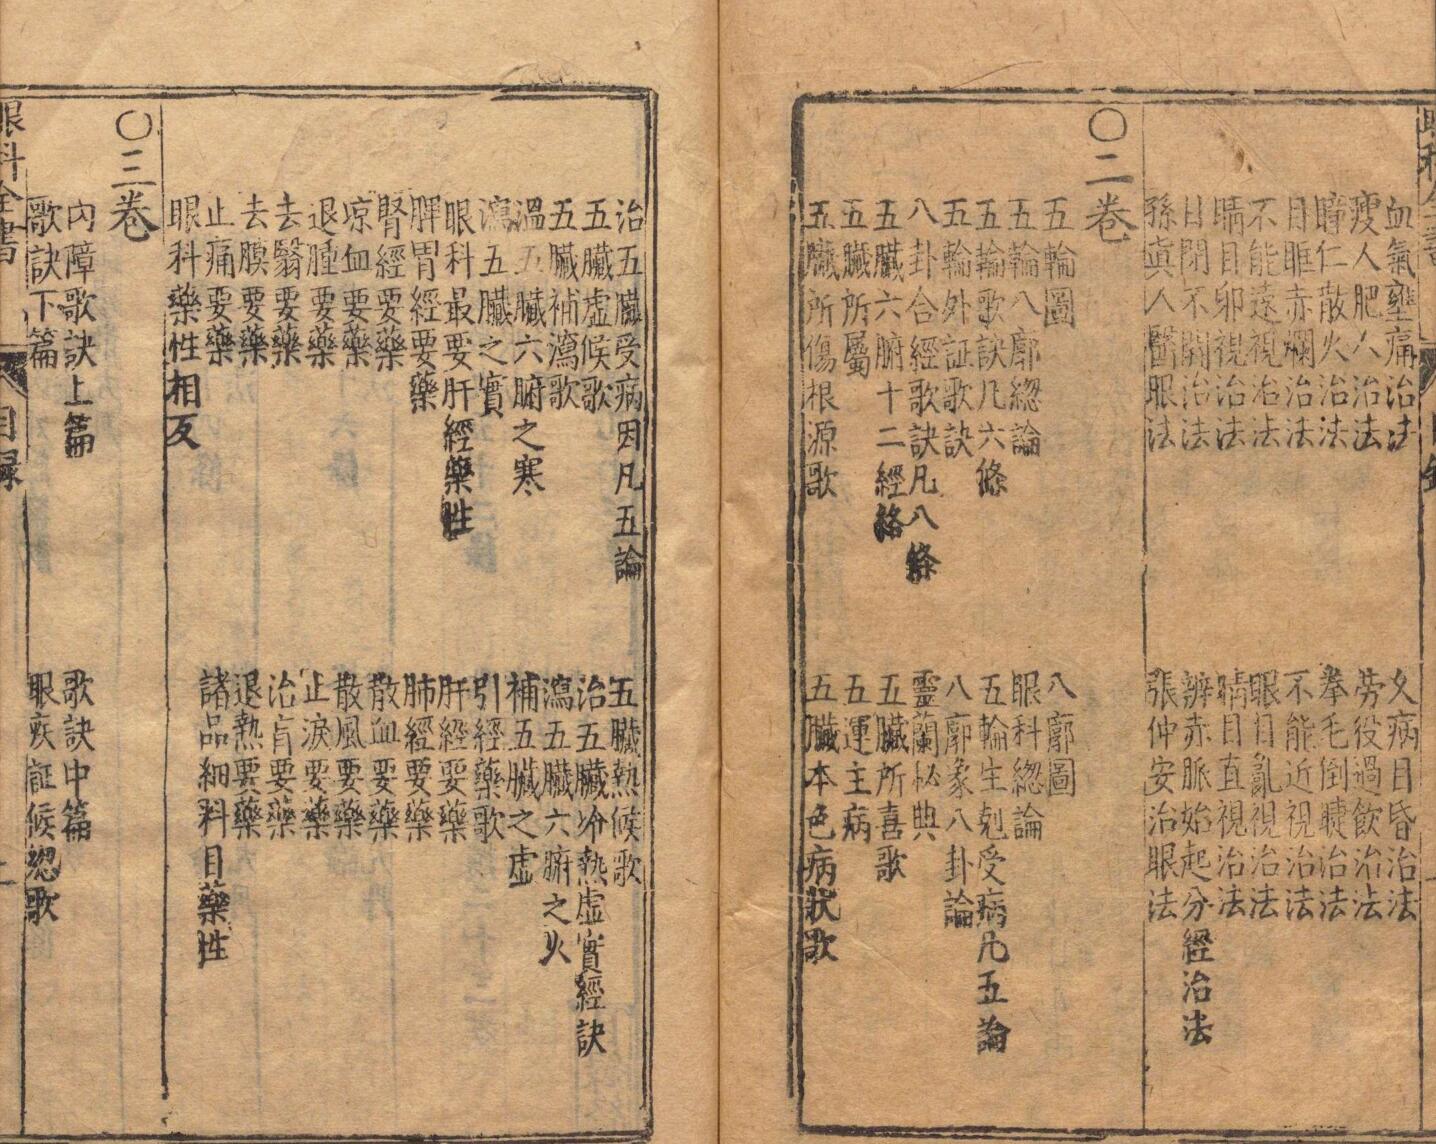 血氣壅痛治法
久病目昏治法
瘦人肥人治法
勞役過飲治法
瞳仁散火治法
拳毛倒睫治法
目睢赤爛治法
不能近視治法
不能遠視治法
眼目亂視治法
睛目卯視治法
睛目直視治法
目閉不開治法
辨赤脈始起分經治法
孫真人醫眼法
張仲安治眼法
〇二卷
五輪圖
八廓圖
五輪八廓總論
眼科總論
五輪歌訣凡六條
五輪生剋受病凡五論
五輪外証歌訣
八廓象八卦論
八卦合經歌訣凡八條
靈蘭秘典
五臟六腑十二經絡
五臟所喜歌
五臟所屬
五運主病
五臟所傷根源歌
五臟本色病狀歌
治五臟受病因凡五論
五臟熱候歌
五臟虛候歌
治五臟冷熱虛實經訣
五臟補瀉歌
瀉五臟六腑之火
溫五臟六腑之寒
補五臟之虛
瀉五臟之實
引經藥歌
眼科最要肝經藥性
肝經要藥
脾胃經要藥
肺經要藥
腎經要藥
散血要藥
凉血要藥
散風要藥
退腫要藥
止淚要藥
去翳要藥
治盲要藥
去膜要藥
退熱要藥
止痛要藥
諸品細料目藥性
眼科藥性相反
〇三卷
內障歌訣上篇
歌訣中篇
歌訣下篇
眼疾証候總歌
眼科全書
目錄